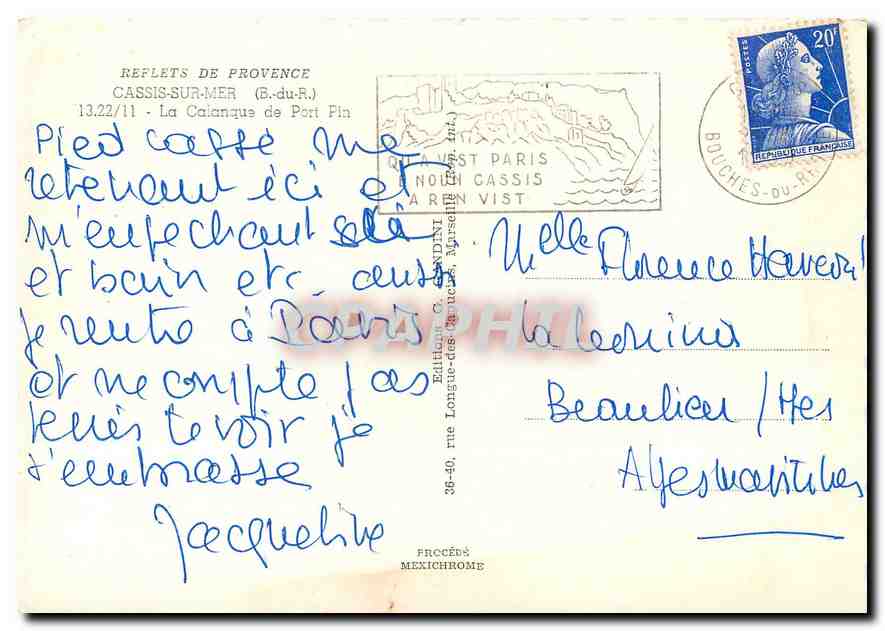 REFLETS DE PROVENCE
CASSIS-SUR-MER (B.-du-R.)
13.22/11 - La Calanque de Port Pin
Pied cassé me
retenant ici et
m'empechant
et bain etc aussi
je rentre à Paris
et ne compte pas
te voir je
t'embrasse
Jacqueline
QU A VIST PARIS
E NOUN CASSIS
A REN VIST
POSTES
20F
REPUBLIQUE FRANÇAISE
BOUCHES-DU-RH
Editions G.
36-40, rue Longue-des-Capucins, Marseille (Rep. int.)
Melle Florence
Beaulieu / Mer
Alpes maritimes
PROCÉDÉ
MEXICHROME
CPAPHIL